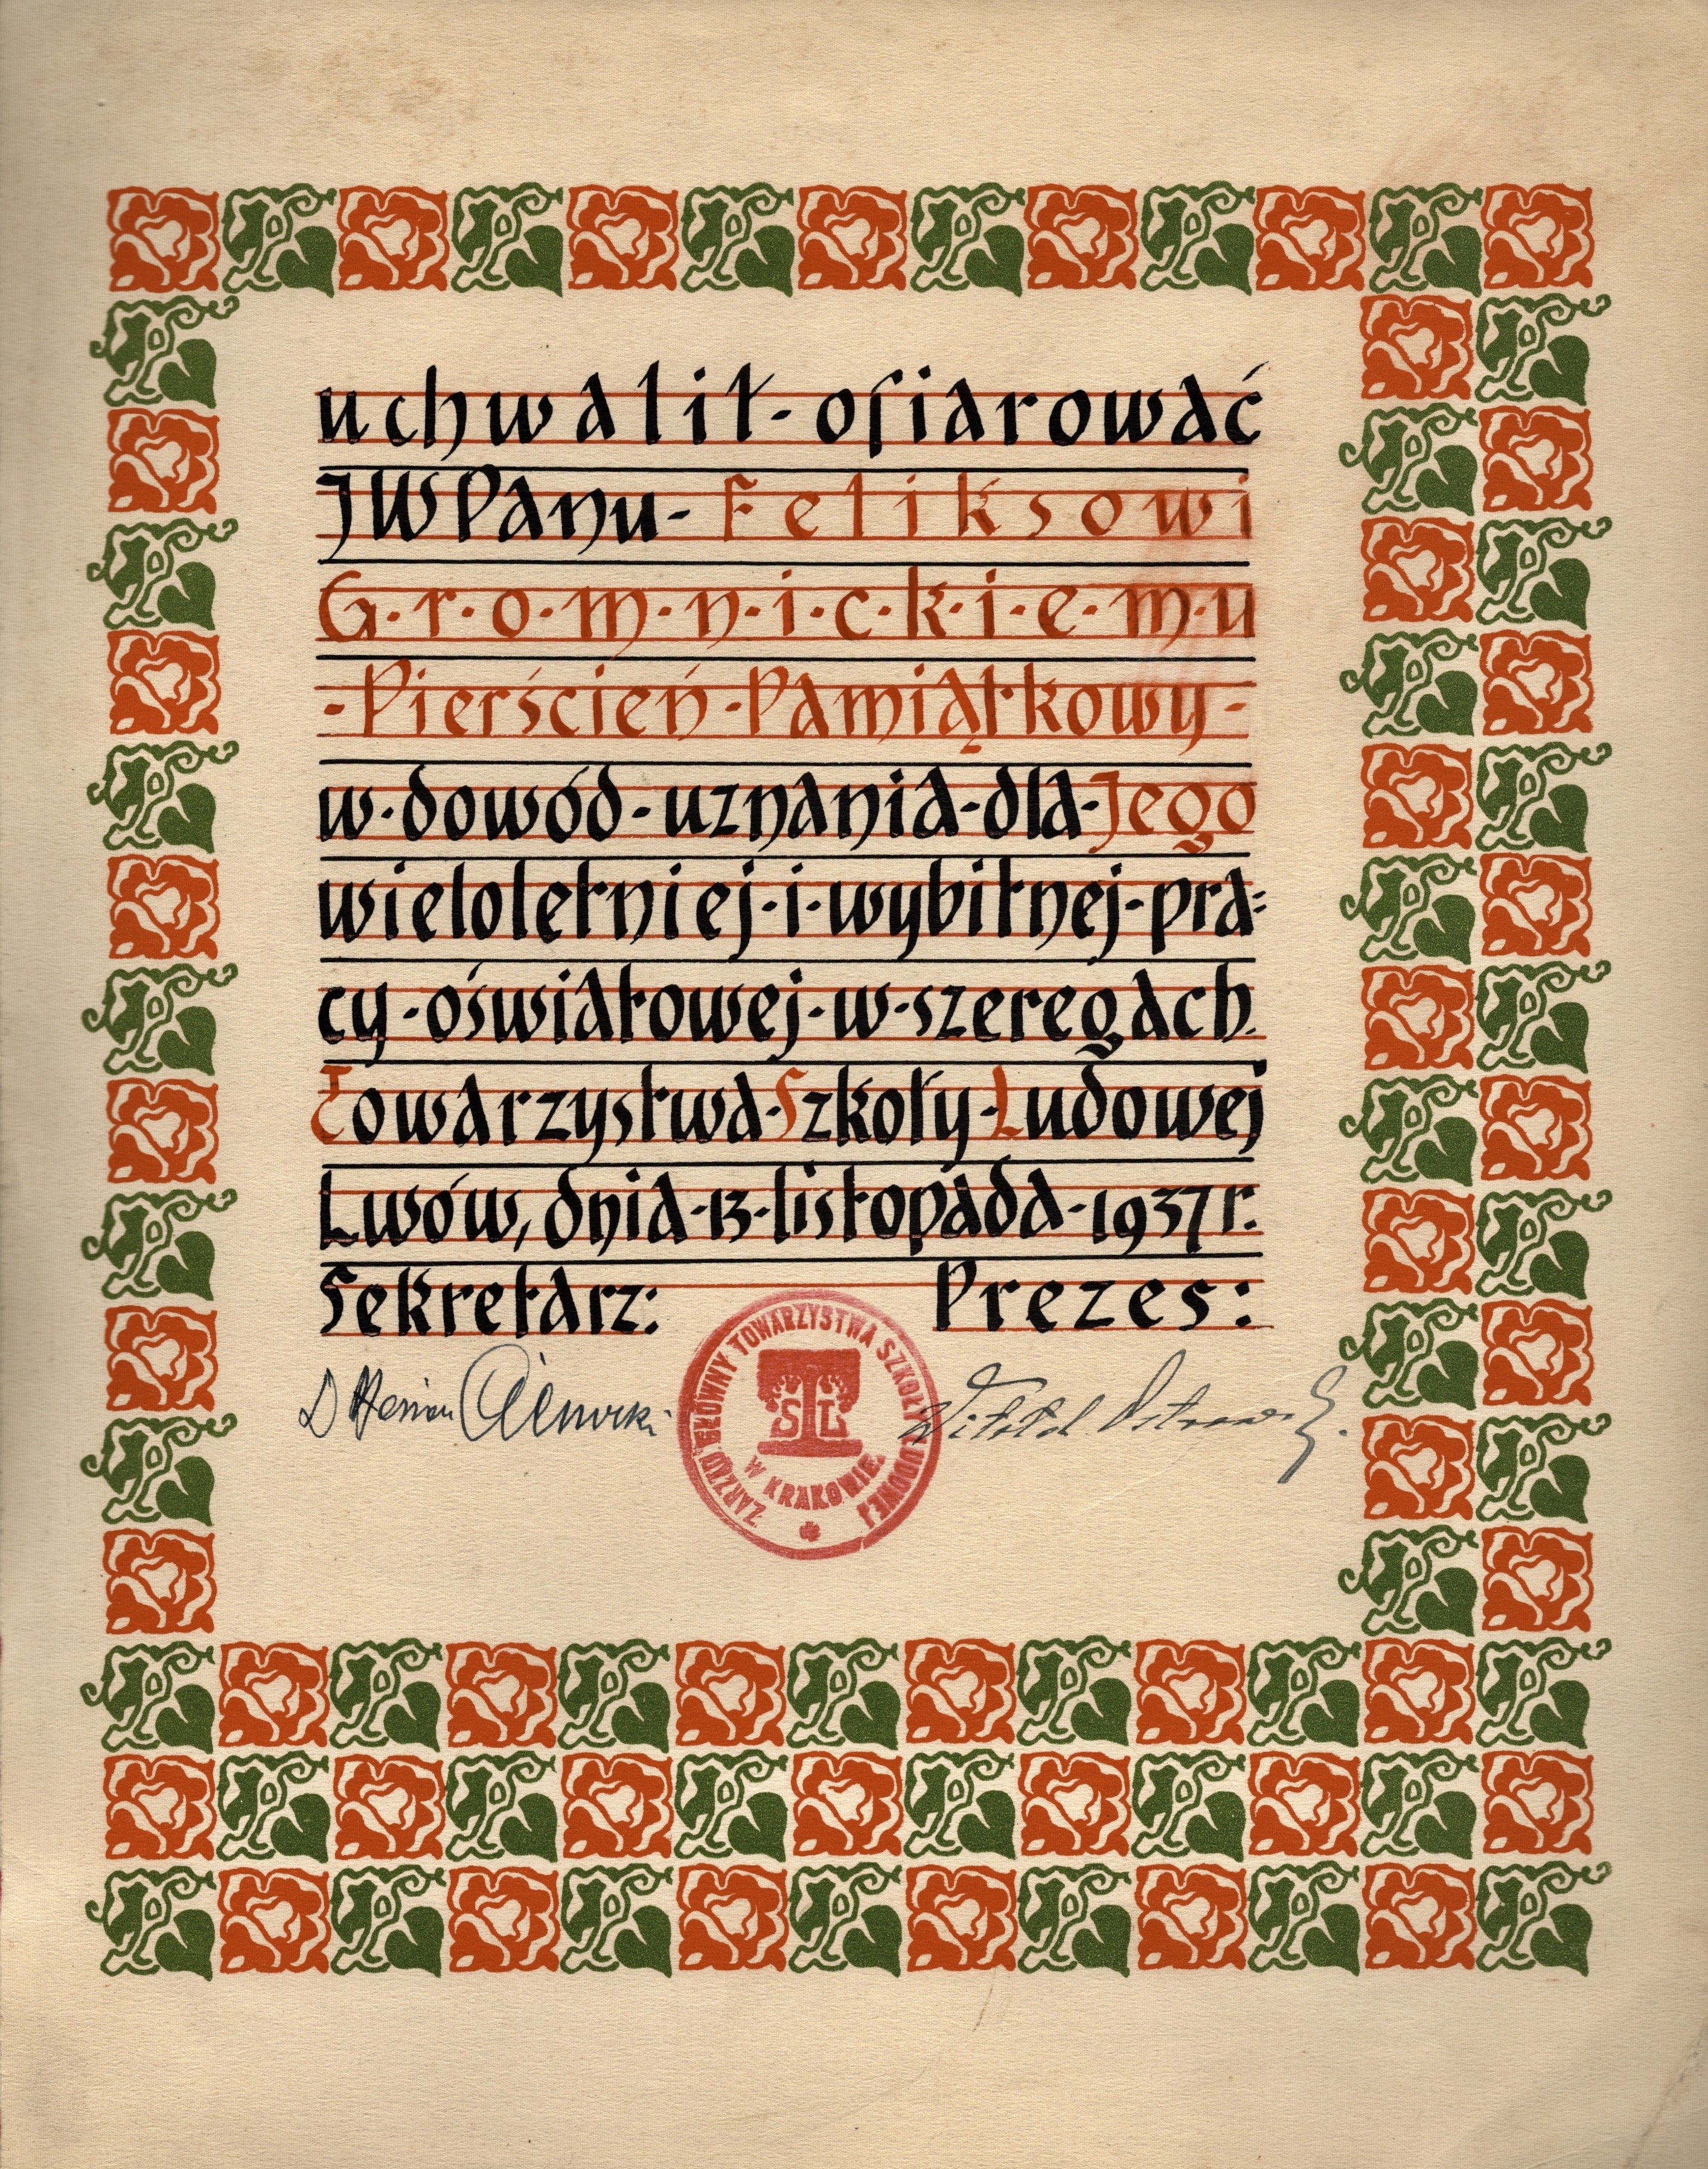 uchwalił-ofiarować
JWPanu-Feliksowi
G·r·o·m·n·i·c·k·i·e·m·u
-Pierścień-Pamiątkowy-
w·dowód-uznania-dla-Jego
wieloletniej-i-wybitnej-pra=
cy-oświatowej-w-szeregach
Towarzystwa-Szkoły-Ludowej
Lwów, dnia-13-listopada-1937 r.
Sekretarz: Prezes:
ZARZĄD GŁÓWNY TOWARZYSTWA SZKOŁY LUDOWEJ
W KRAKOWIE
TSL
Witold